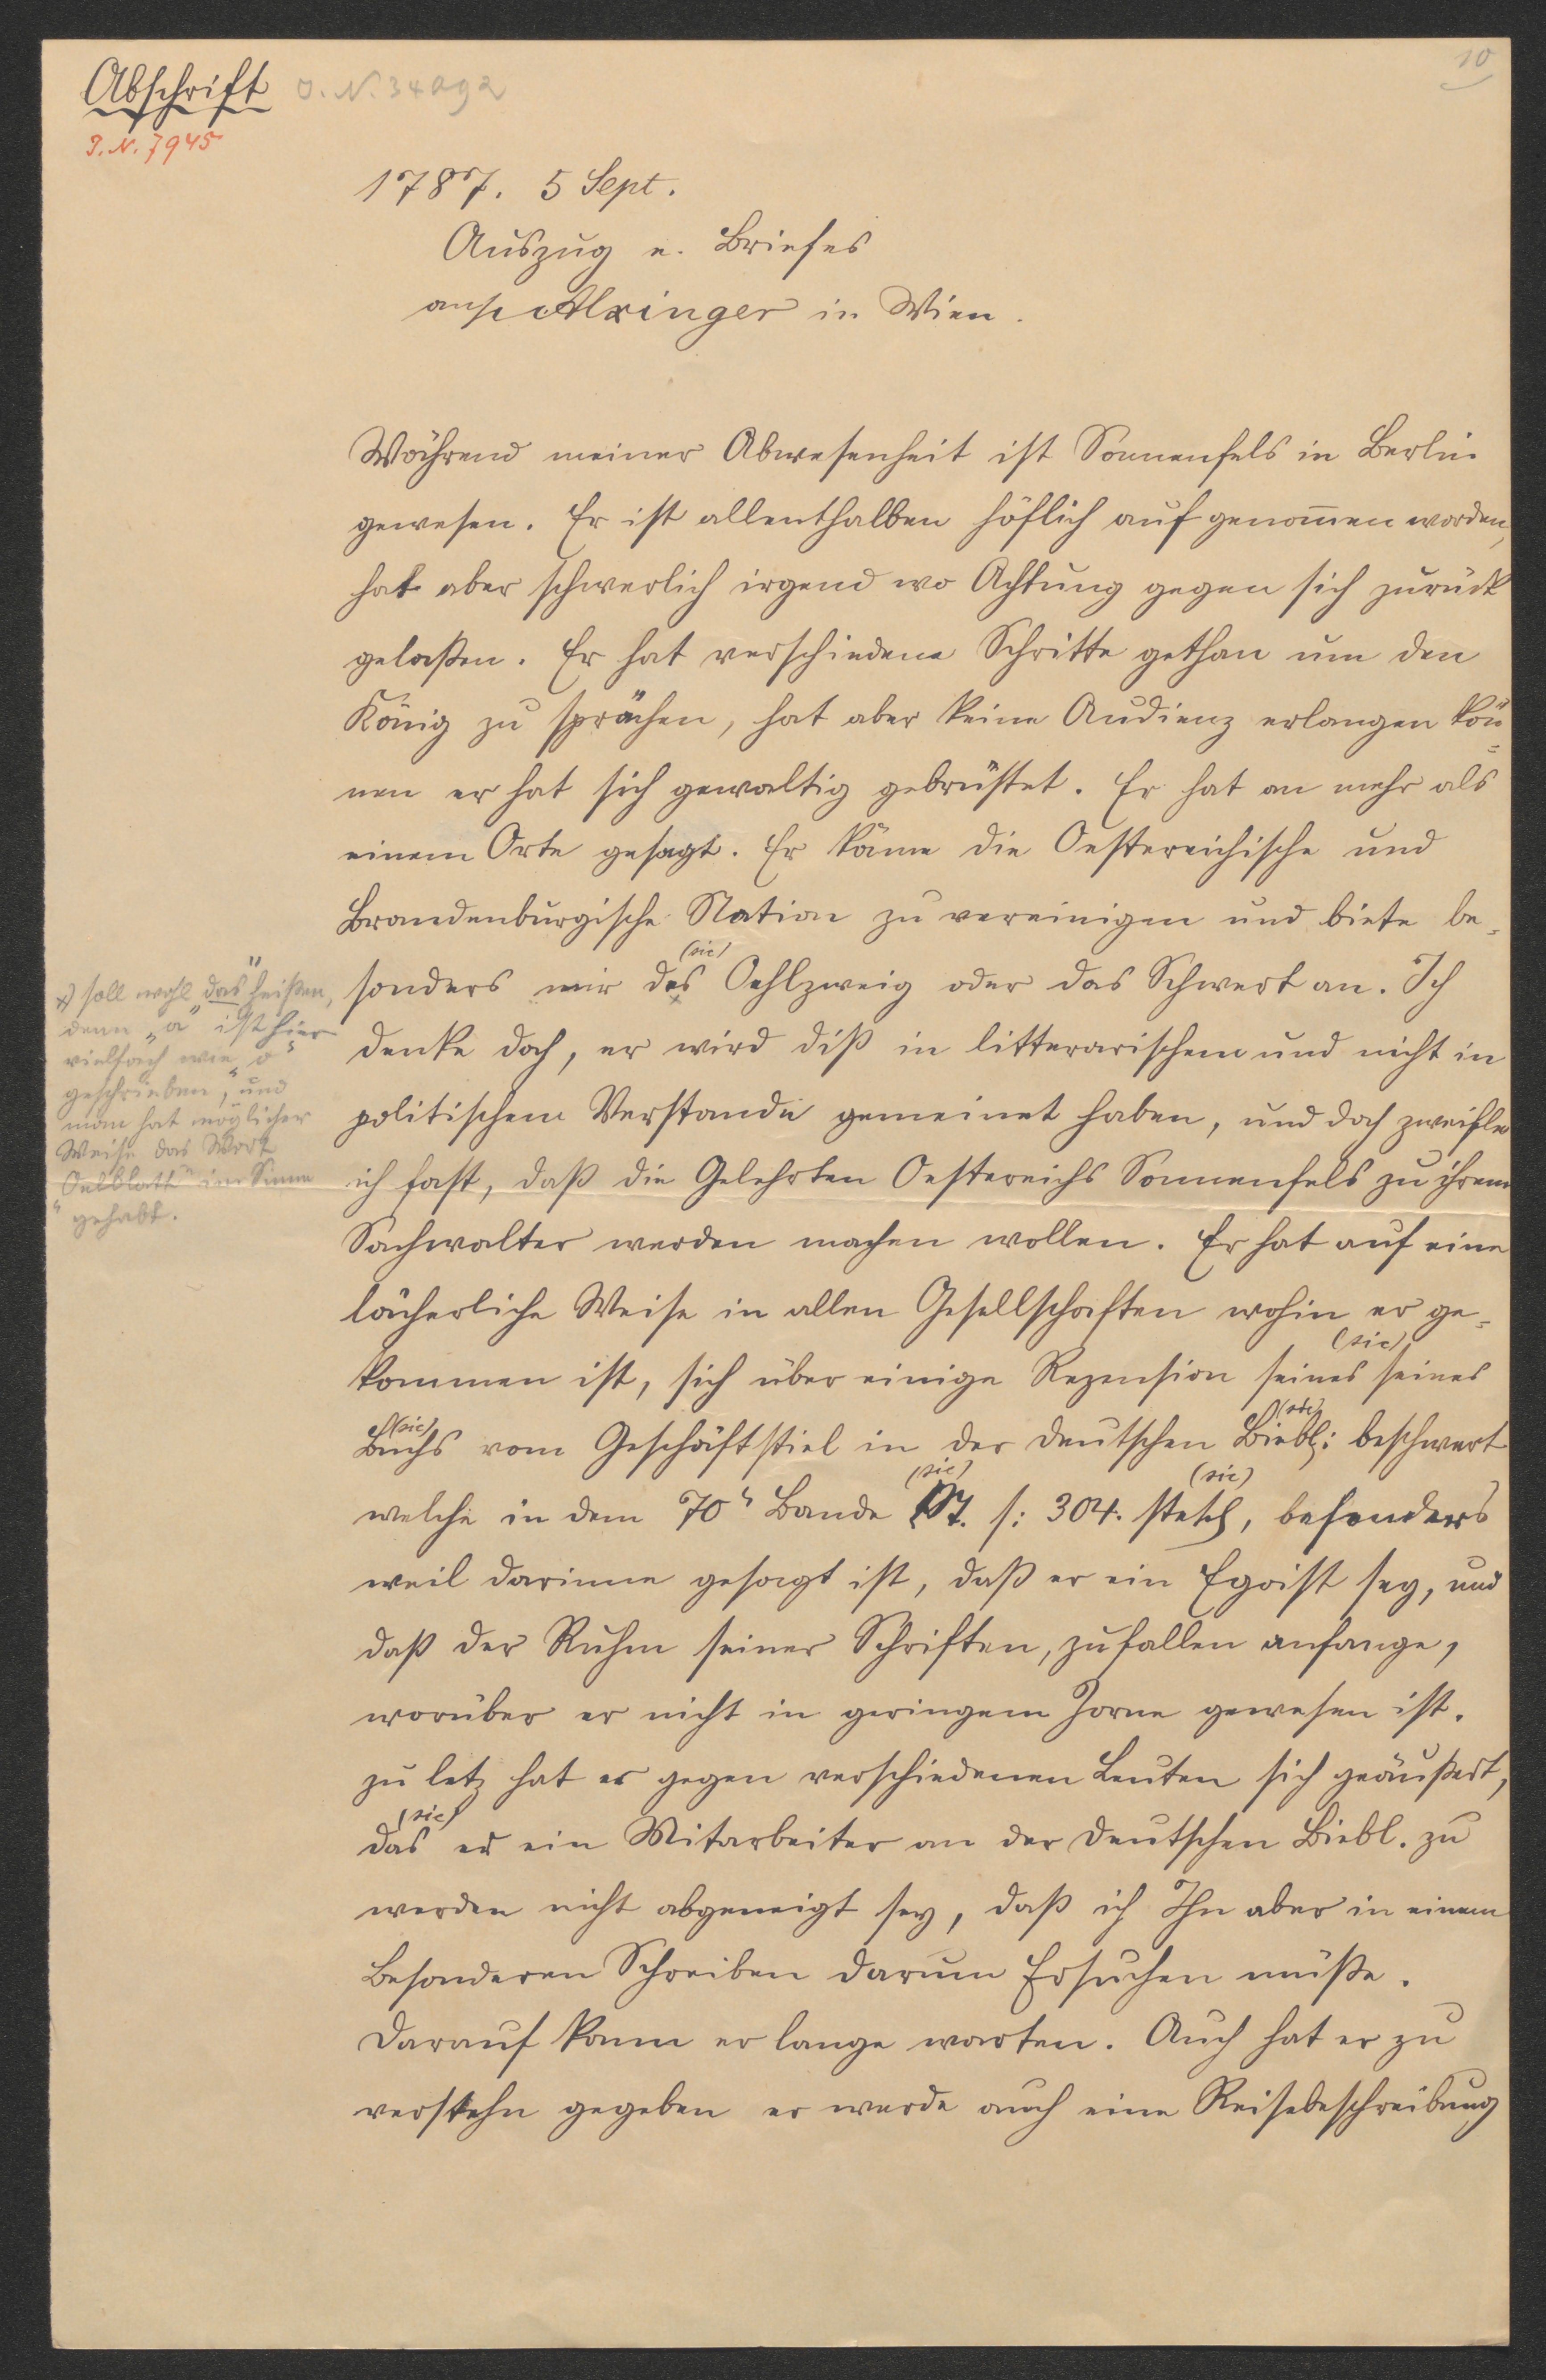 Abschrift
J. N. 34092
10
J. N. 7945
1787. 5 Sept.
Auszug e. Briefes
Alxinger in Wien.
Während meiner Abwesenheit ist Sonnenfels in Berlin
gewesen. Er ist allenthalben höflich aufgenom̄en worden,
hat aber schwerlich irgend wo Achtung gegen sich zurück
gelaßen. Er hat verschiedene Schritte gethan um den
König zu sprächen, hat aber keine Audienz erlangen kön̄
nen er hat sich gewaltig gebrüstet. Er hat an mehr als
einem Orte gesagt. Er käme die Oestereichische und
Brandenburgische Nation zu vereinigen und biete be-
(sic)
sonders mir des Oehlzweig oder das Schwert an. Ich
denke doch, er wird diß in litterarischem und nicht in
politischem Verstande gemeinet haben, und doch zweifle
ich fast, daß die Gelehrten Oestereichs Sonnenfels zu ihrem
Sachwalter werden machen wollen. Er hat auf eine
lächerliche Weise in allen Gesellschaften wohin er ge-
(sic)
kommen ist, sich über einige Rezension seines seines
(sic) (sic)
Buchs vom Geschäftstiel in der deutschen Biebl: beschwert
(sic) (sic)
welche in dem 70t Bande St. s: 304. steh, besonders
weil darinne gesagt ist, daß er ein Egoist sey, und
daß der Ruhm seiner Schriften, zu fallen anfange,
worüber er nicht in geringem Zorne gewesen ist.
zu letz hat er gegen verschiedenen Leuten sich geäußert,
(sic)
das er ein Mitarbeiter an der deutschen Biebl. zu
werden nicht abgeneigt sey, daß ich Ihn aber in einem
Besonderen Schreiben darum Ersuchen müße.
Darauf kann er lange warten. Auch hat er zu
verstehn gegeben er werde auch eine Reisebeschreibung
x) soll wohl „das" heißen,
denn „a" ist hier
vielfach wie „o"
geschrieben, und
man hat möglicher
Weise das Wort
„Oelblatt" im Sinne
gehabt.